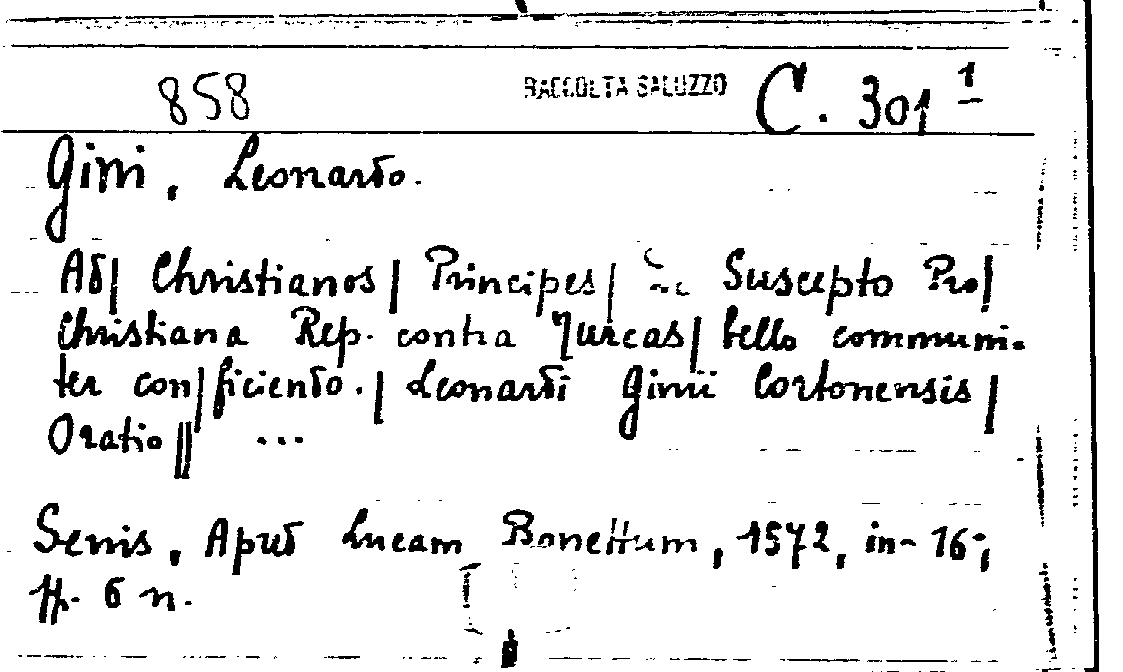 858 RACCOLTA SALUZZO C. 301 1
Gini, Leonardo.
Ad| Christianos | Principes | Suscepto Pro|
Christiana Rep. contra Turcas| bello communi-
ter con|ficiendo. | Leonardi Ginii Cortonensis |
Oratio || ...
Senis, Apud Lucam Bonettum, 1572, in-16°,
ff. 6 n.